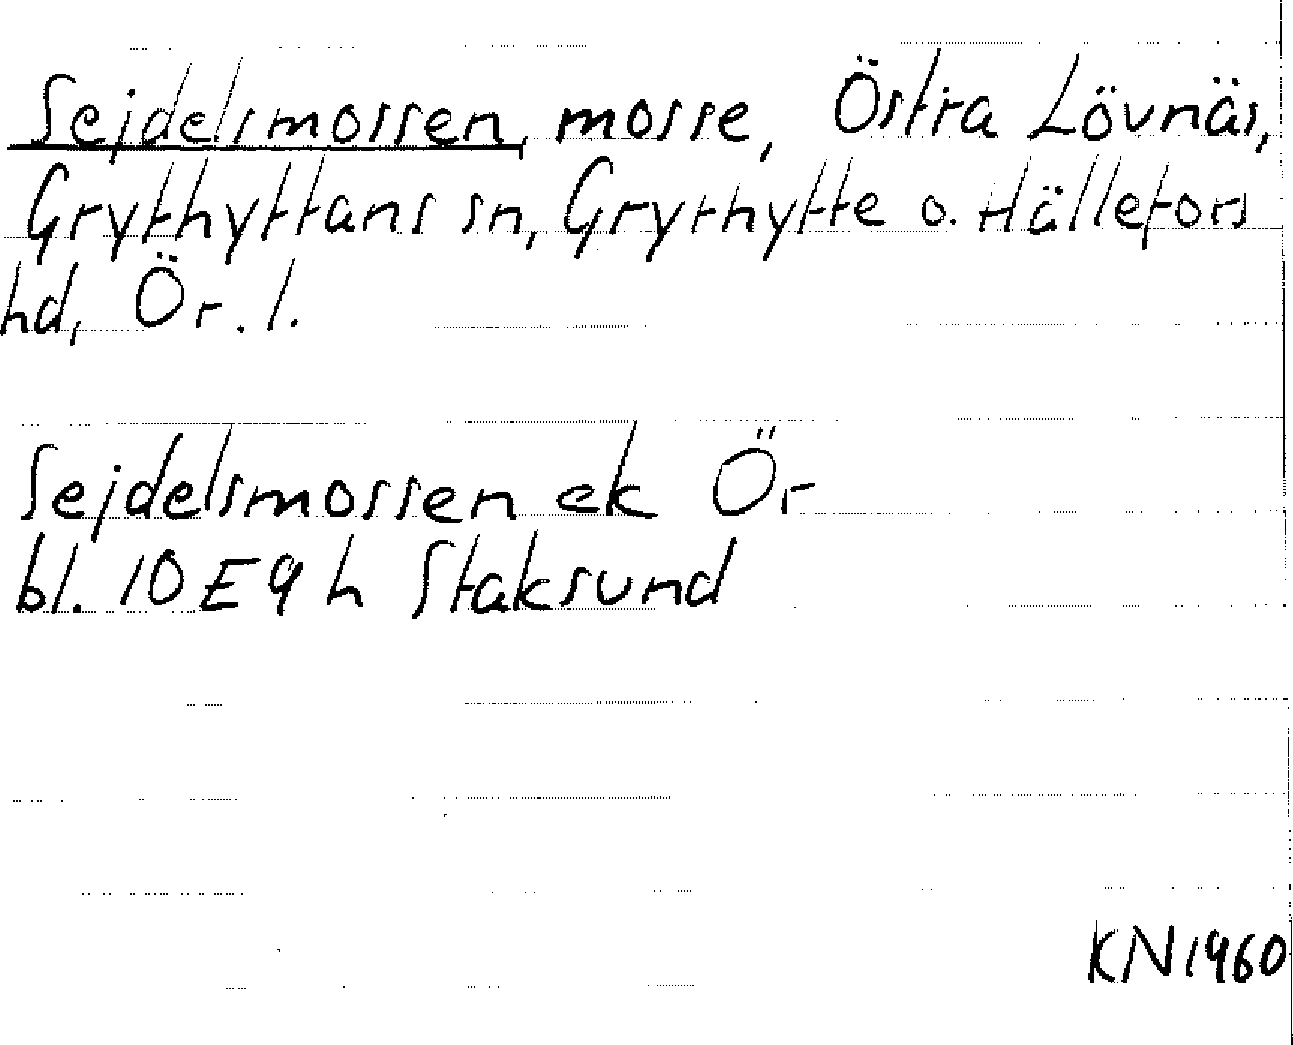 Sejdelsmossen, mosse, Östra Lövnäs,
Grythyttans sn, Grythytte o. Hällefors
hd, Ör. l.
Sejdelsmossen ek Ör
bl. 10 E 9 h Staksund
KN 1960